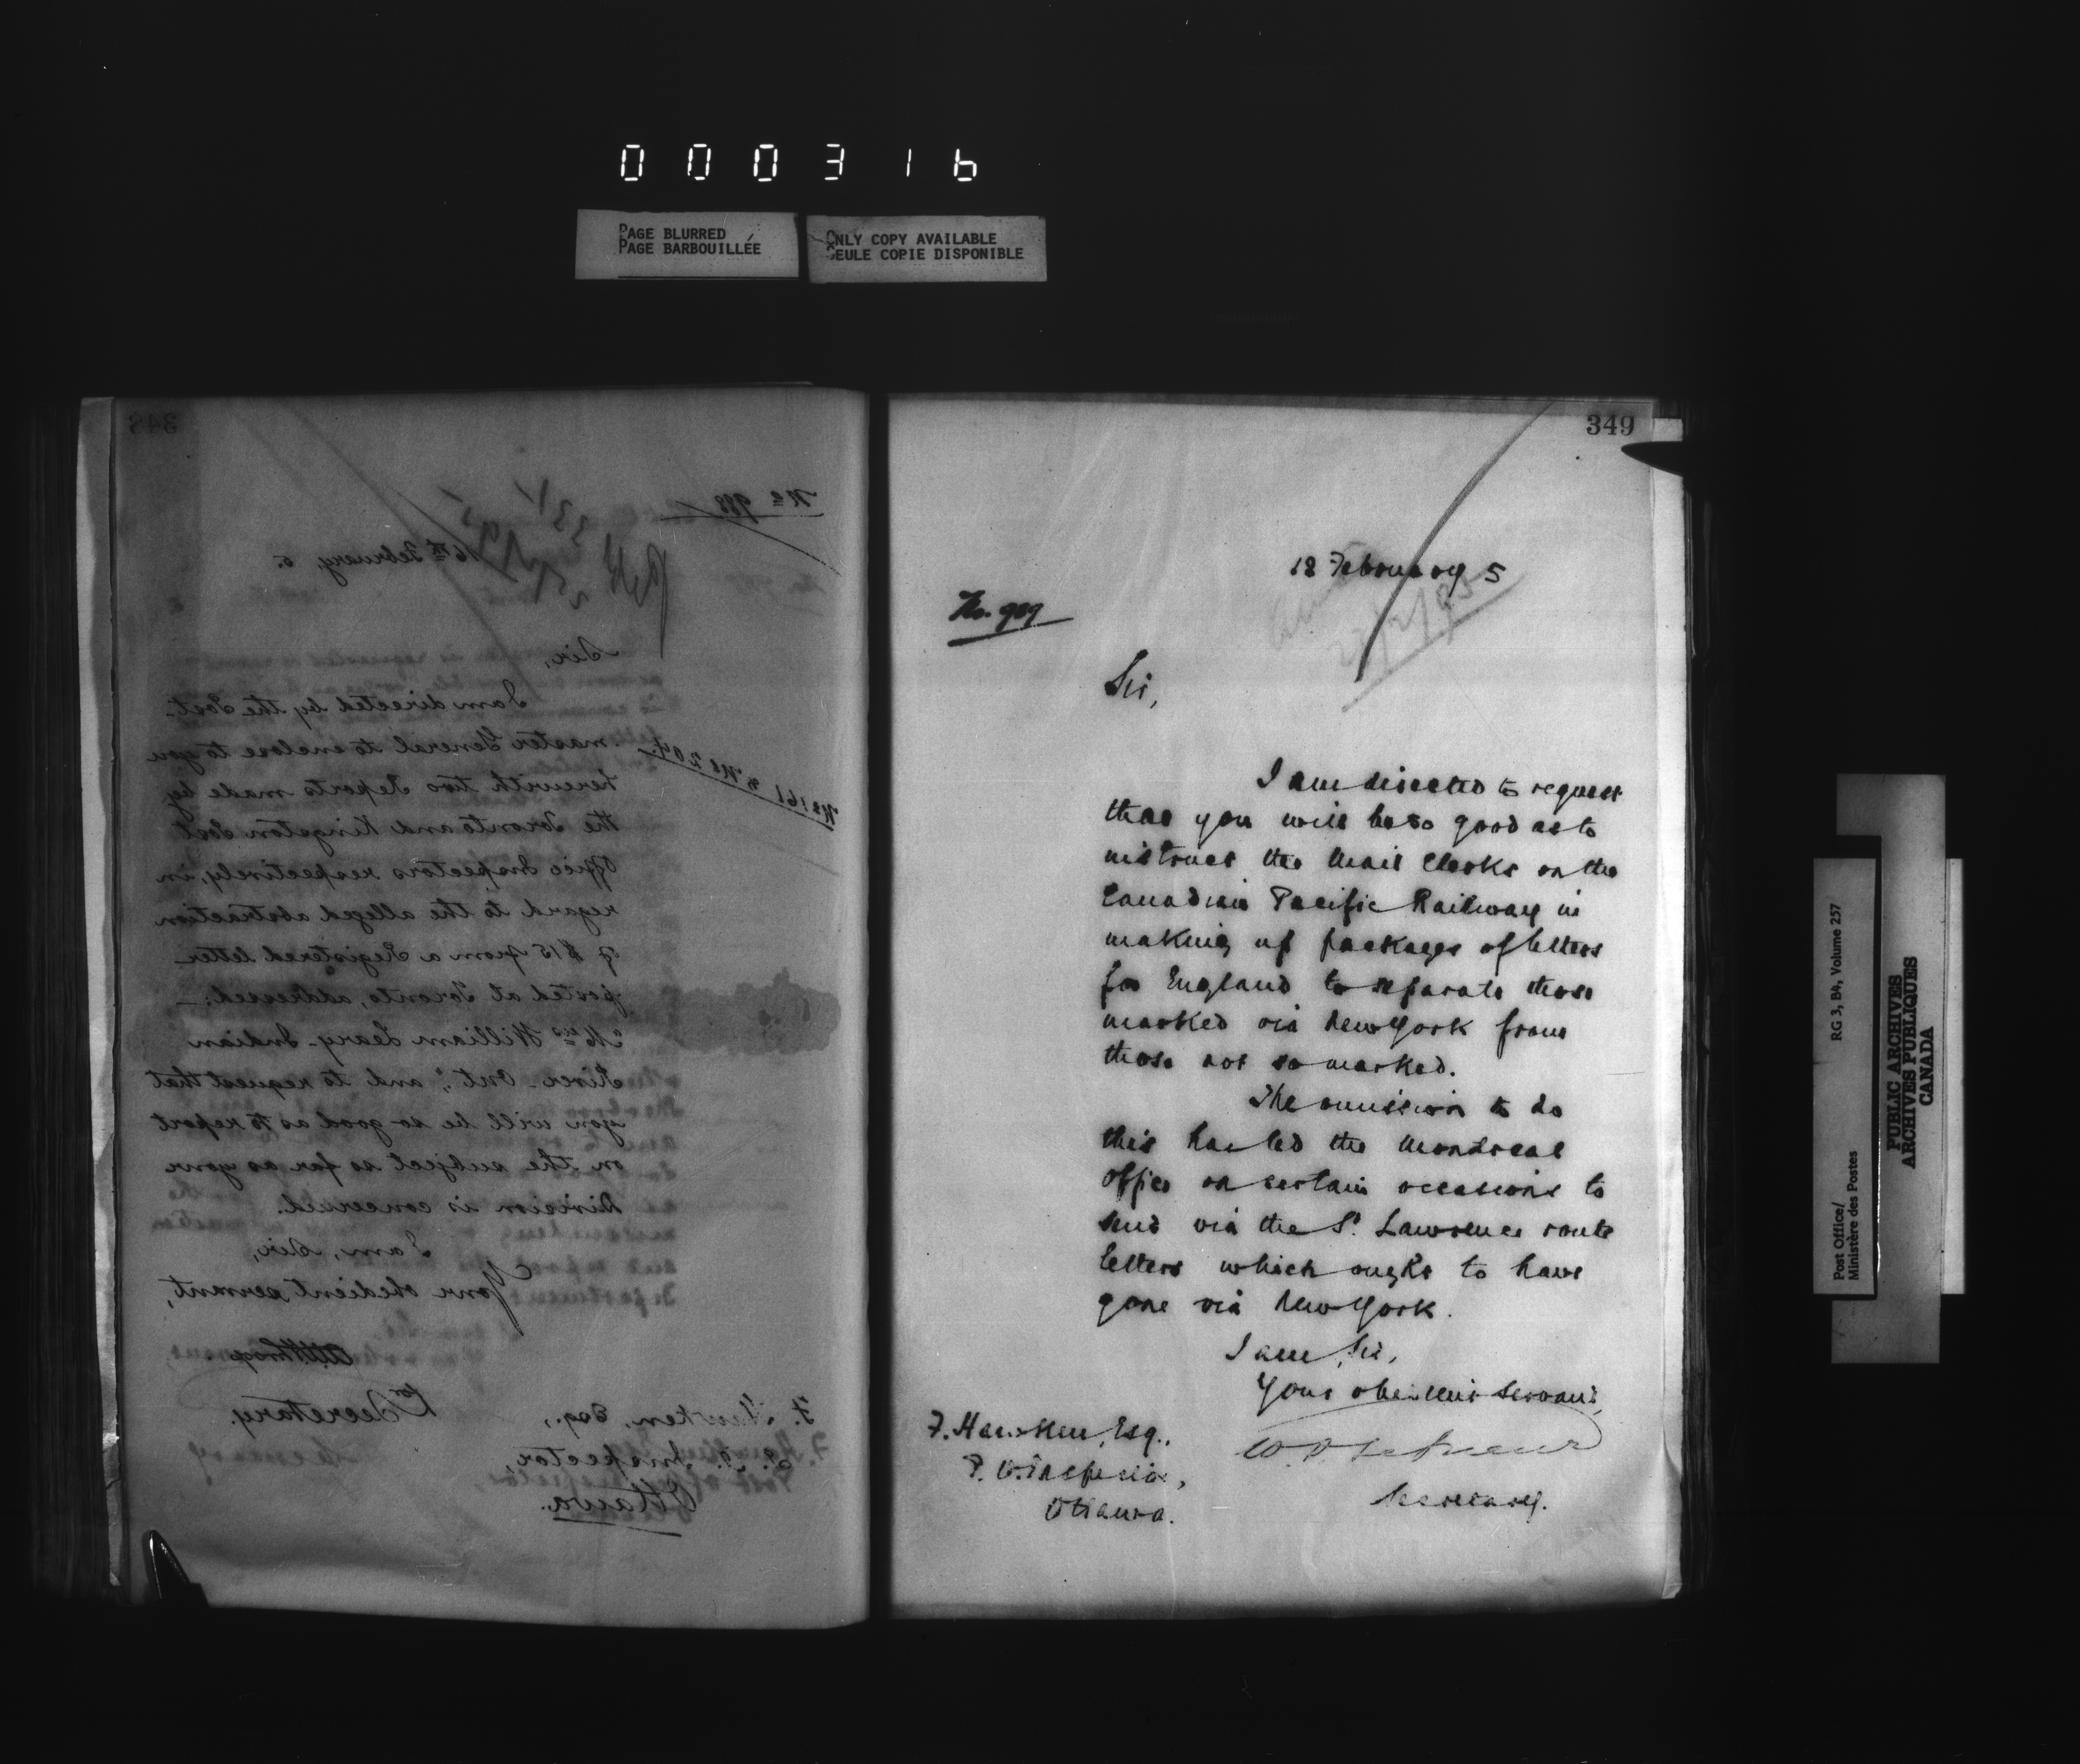 000316
PAGE BLURRED
PAGE BARBOUILLÉE
ONLY COPY AVAILABLE
SEULE COPIE DISPONIBLE
348
No 988
16th February, 5.
Sir,
I am directed by the Post-
master General to enclose to you
herewith two Reports made by
the Toronto and Kingston Post
Office Inspectors respectively, in
regard to the alleged abstraction
of $15 from a Registered letter
posted at Toronto, addressed:—
"Mrs William Leary - Indian
River - Ont", and to request that
you will be so good as to report
on the subject so far as your
Division is concerned.
I am, Sir,
Your obedient servant,
for Secretary.
F. Hawken, Esq.,
P. O. Inspector,
Ottawa.
349
18 February 5
No. 989
Sir,
I am directed to request
that you will be so good as to
instruct the Mail Clerks on the
Canadian Pacific Railway in
making up packages of letters
for England to separate those
marked via New York from
those not so marked.
The omission to do
this has led the Montreal
office on certain occasions to
send via the St. Lawrence route
letters which ought to have
gone via New York.
I am, Sir,
Your obedient servant,
Secretary.
F. Hawken, Esq.,
P. O. Inspector,
Ottawa.
Post Office/
Ministère des Postes
RG 3, B4, Volume 257
PUBLIC ARCHIVES
ARCHIVES PUBLIQUES
CANADA